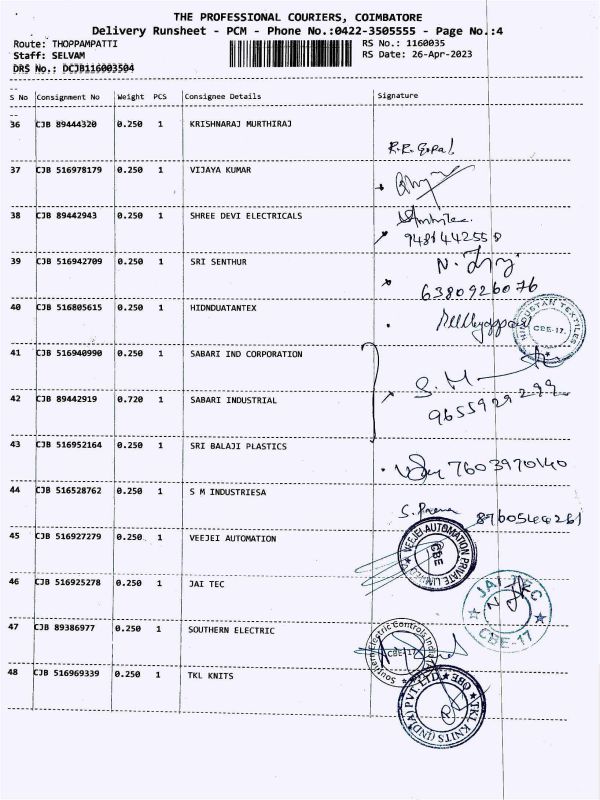 THE PROFESSIONAL COURIERS, COIMBATORE
Delivery Runsheet - PCM - Phone No.:0422-3505555 - Page No.:4
Route: THOPPAMPATTI
RS No.: 1160035
Staff: SELVAM
RS Date: 26-Apr-2023
DRS No.: DCJB116003504
S No Consignment No Weight PCS Consignee Details Signature
36 CJB 89444320 0.250 1 KRISHNARAJ MURTHIRAJ
R.R. Gopal
37 CJB 516978179 0.250 1 VIJAYA KUMAR
38 CJB 89442943 0.250 1 SHREE DEVI ELECTRICALS
9481442558
39 CJB 516942709 0.250 1 SRI SENTHUR
6380926076
40 CJB 516805615 0.250 1 HIDNDUATANTEX
HINDUSTAN TEXTILES CBE-17.
41 CJB 516940990 0.250 1 SABARI IND CORPORATION
S. M
42 CJB 89442919 0.720 1 SABARI INDUSTRIAL
9655929299
43 CJB 516952164 0.250 1 SRI BALAJI PLASTICS
7603970140
44 CJB 516528762 0.250 1 S M INDUSTRIESA
45 CJB 516927279 0.250 1 VEEJEI AUTOMATION
VEEJEI AUTOMATION PRIVATE LIMITED CBE
46 CJB 516925278 0.250 1 JAI TEC
JAI TEC CBE-17
47 CJB 89386977 0.250 1 SOUTHERN ELECTRIC
Southern Electric Controls India CBE-17
48 CJB 516969339 0.250 1 TKL KNITS
TKL KNITS (INDIA) PVT. LTD. CBE